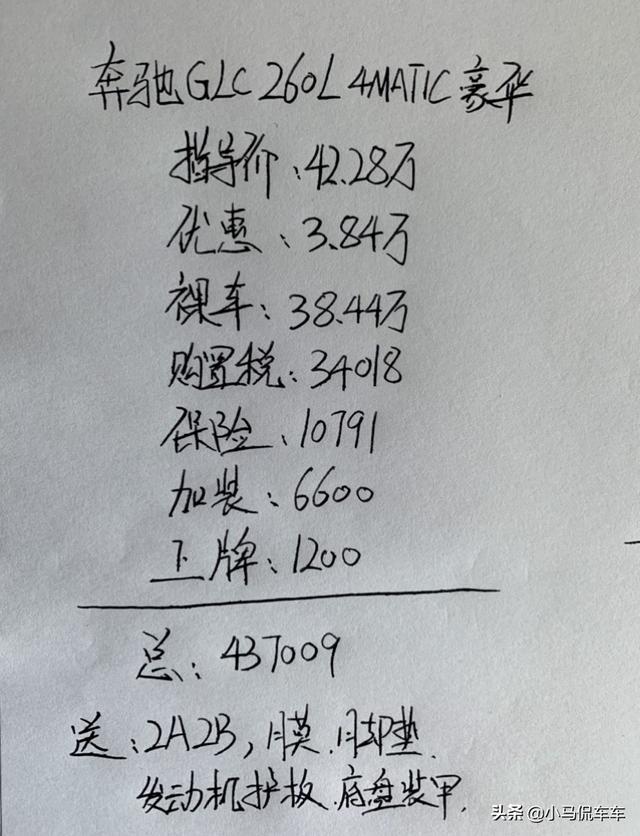 奔驰GLC 260L 4MATIC 豪华
指导价:42.28万
优惠:3.84万
裸车:38.44万
购置税:34018
保险:10791
加装:6600
上牌:1200
总:437009
送:2A2B,膜.脚垫.
发动机护板.底盘装甲.
头条 @小马侃车车